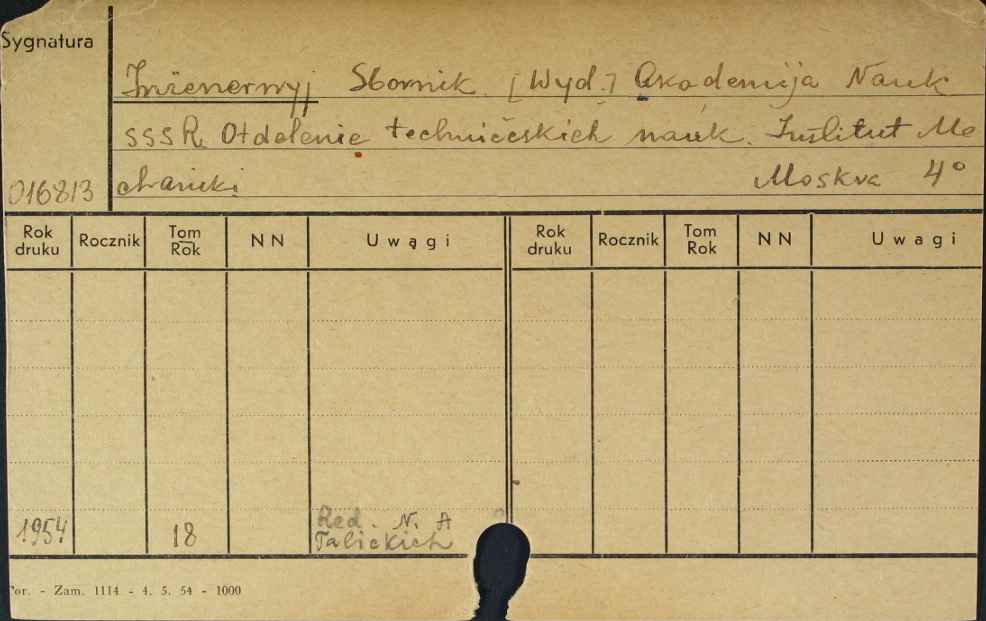 Sygnatura
Inżenernyj Sbornik. [Wyd.] Akademija Nauk
SSSR. Otdelenie techničeskich nauk. Institut Me
016813 chaniki Moskva 4°
Rok druku Rocznik Tom Rok NN Uwagi Rok druku Rocznik Tom Rok NN Uwagi
1954 18 Red. N. A
Talickich
or. - Zam. 1114 - 4. 5. 54 - 1000